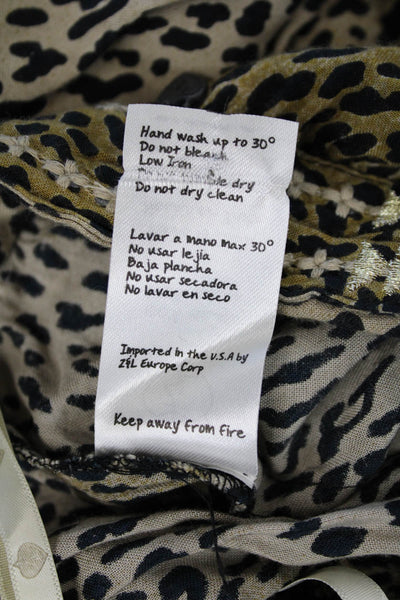 Hand wash up to 30°
Do not bleach
Low Iron
dry
Do not dry clean
Lavar a mano max 30°
No usar lejía
Baja plancha
No usar secadora
No lavar en seco
Imported in the U.S.A by
Z&L Europe Corp
Keep away from fire